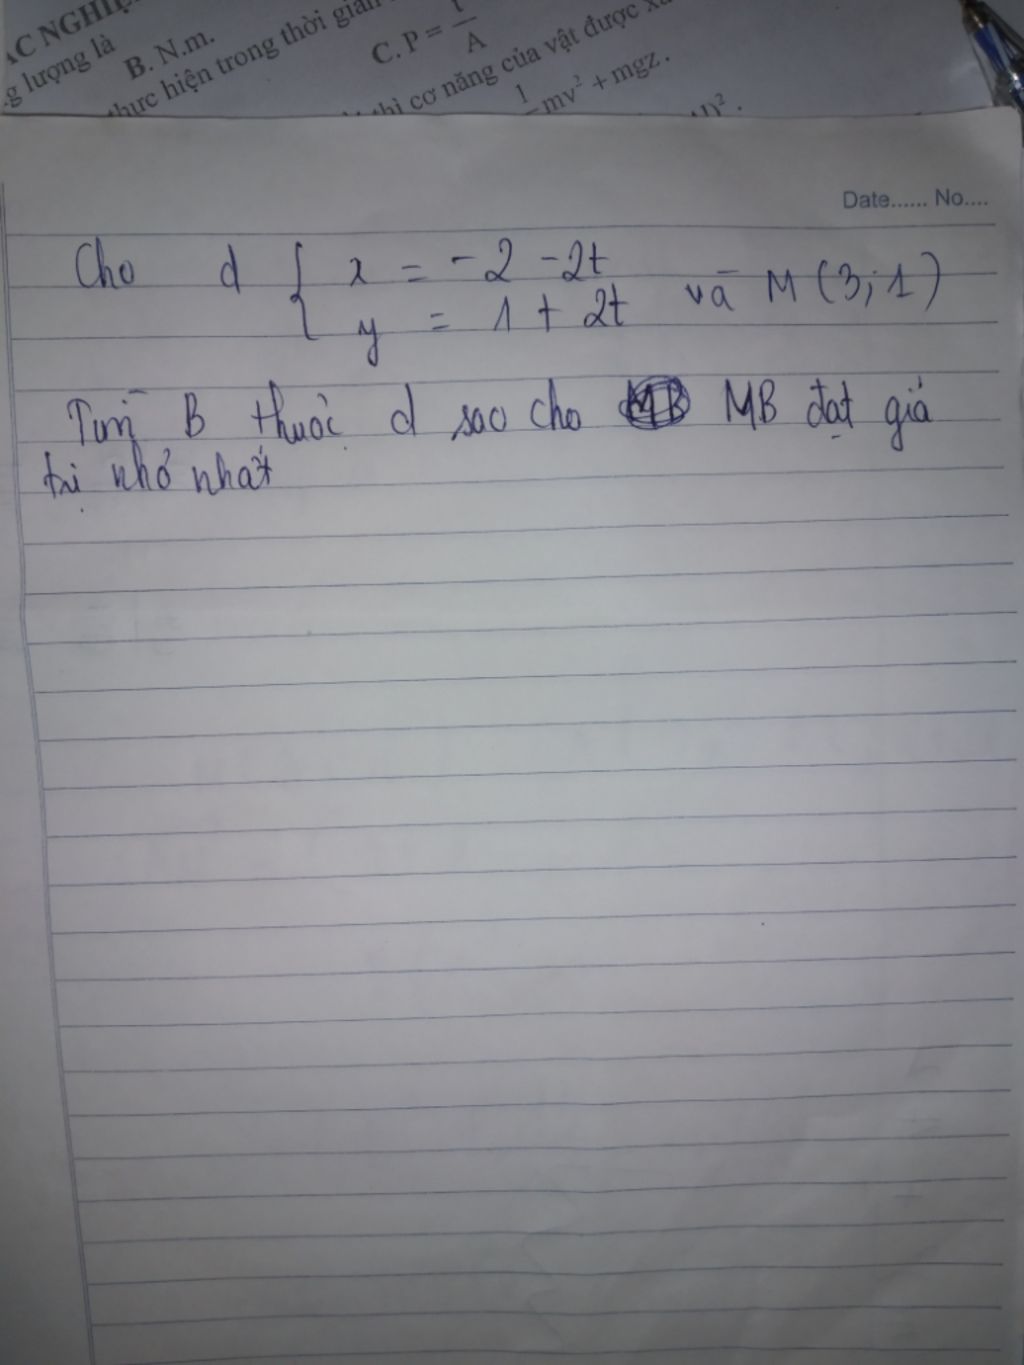 ẮC NGHIỆ
g lượng là
B. N.m.
C. P = t/A
thực hiện trong thời gian
thì cơ năng của vật được
1
mv² + mgz.
)².
Date...... No....
Cho d { x = -2 -2t
y = 1 + 2t và M (3; 1)
Tìm B thuộc d sao cho MB đạt giá
trị nhỏ nhất